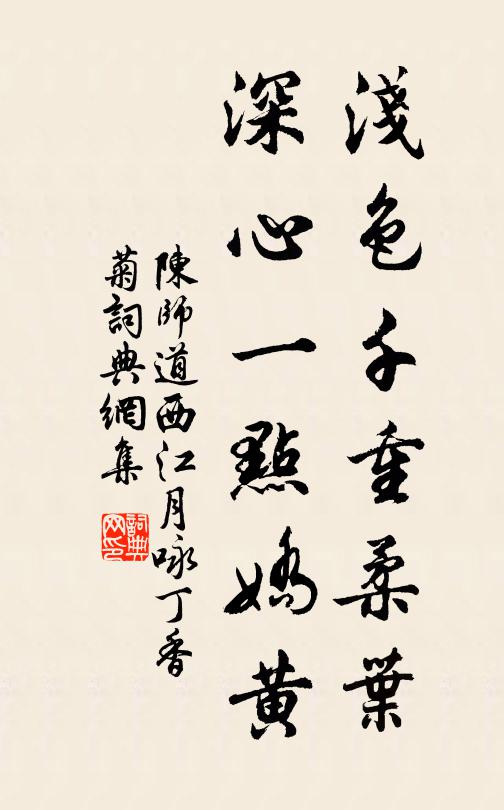 淺色千重柔葉
深心一點嬌黃
陳師道西江月咏丁香
菊詞典網集
詞典网印